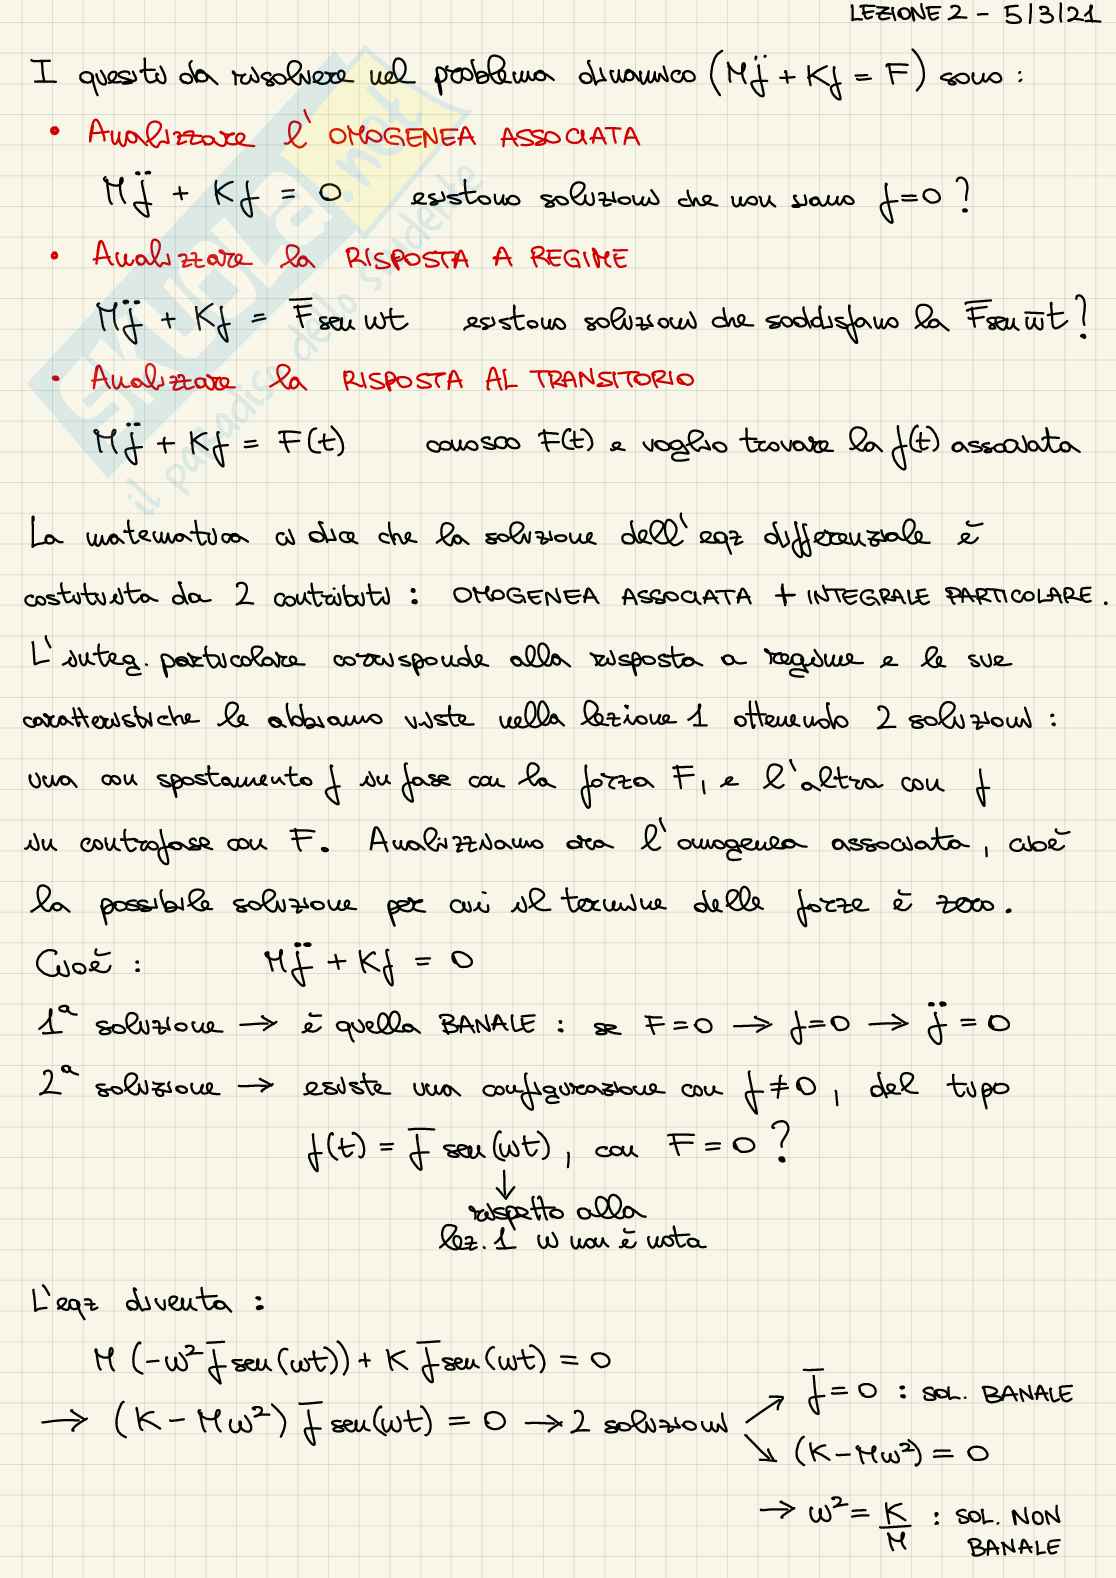 LEZIONE 2 - 5/3/21
I quesiti da risolvere nel problema dinamico (Mf̈ + Kf = F) sono :
• Analizzare l'OMOGENEA ASSOCIATA
Mf̈ + Kf = 0 esistono soluzioni che non siano f=0 ?
• Analizzare la RISPOSTA A REGIME
Mf̈ + Kf = F̅ sen ωt esistono soluzioni che soddisfano la F̅ sen ω̅t ?
• Analizzare la RISPOSTA AL TRANSITORIO
Mf̈ + Kf = F(t) conosco F(t) e voglio trovare la f(t) associata
La matematica ci dice che la soluzione dell'eqz differenziale è
costituita da 2 contributi : OMOGENEA ASSOCIATA + INTEGRALE PARTICOLARE.
L'integ. particolare corrisponde alla risposta a regime e le sue
caratteristiche le abbiamo viste nella lezione 1 ottenendo 2 soluzioni :
una con spostamento f in fase con la forza F, e l'altra con f
in controfase con F. Analizziamo ora l'omogenea associata, cioè
la possibile soluzione per cui il termine delle forze è zero.
Cioè : Mf̈ + Kf = 0
1ª soluzione → è quella BANALE : se F=0 → f=0 → f̈ = 0
2ª soluzione → esiste una configurazione con f≠0, del tipo
f(t) = f̅ sen(ωt), con F=0 ?
↓
rispetto alla
lez. 1 ω non è nota
L'eqz diventa :
M (-ω² f̅ sen(ωt)) + K f̅ sen(ωt) = 0
→ (K - Mω²) f̅ sen(ωt) = 0 → 2 soluzioni
↗ f̅ = 0 : SOL. BANALE
↘ (K - Mω²) = 0
→ ω² = K/M : SOL. NON
BANALE
SKUOLA.net
il paradiso dello studente